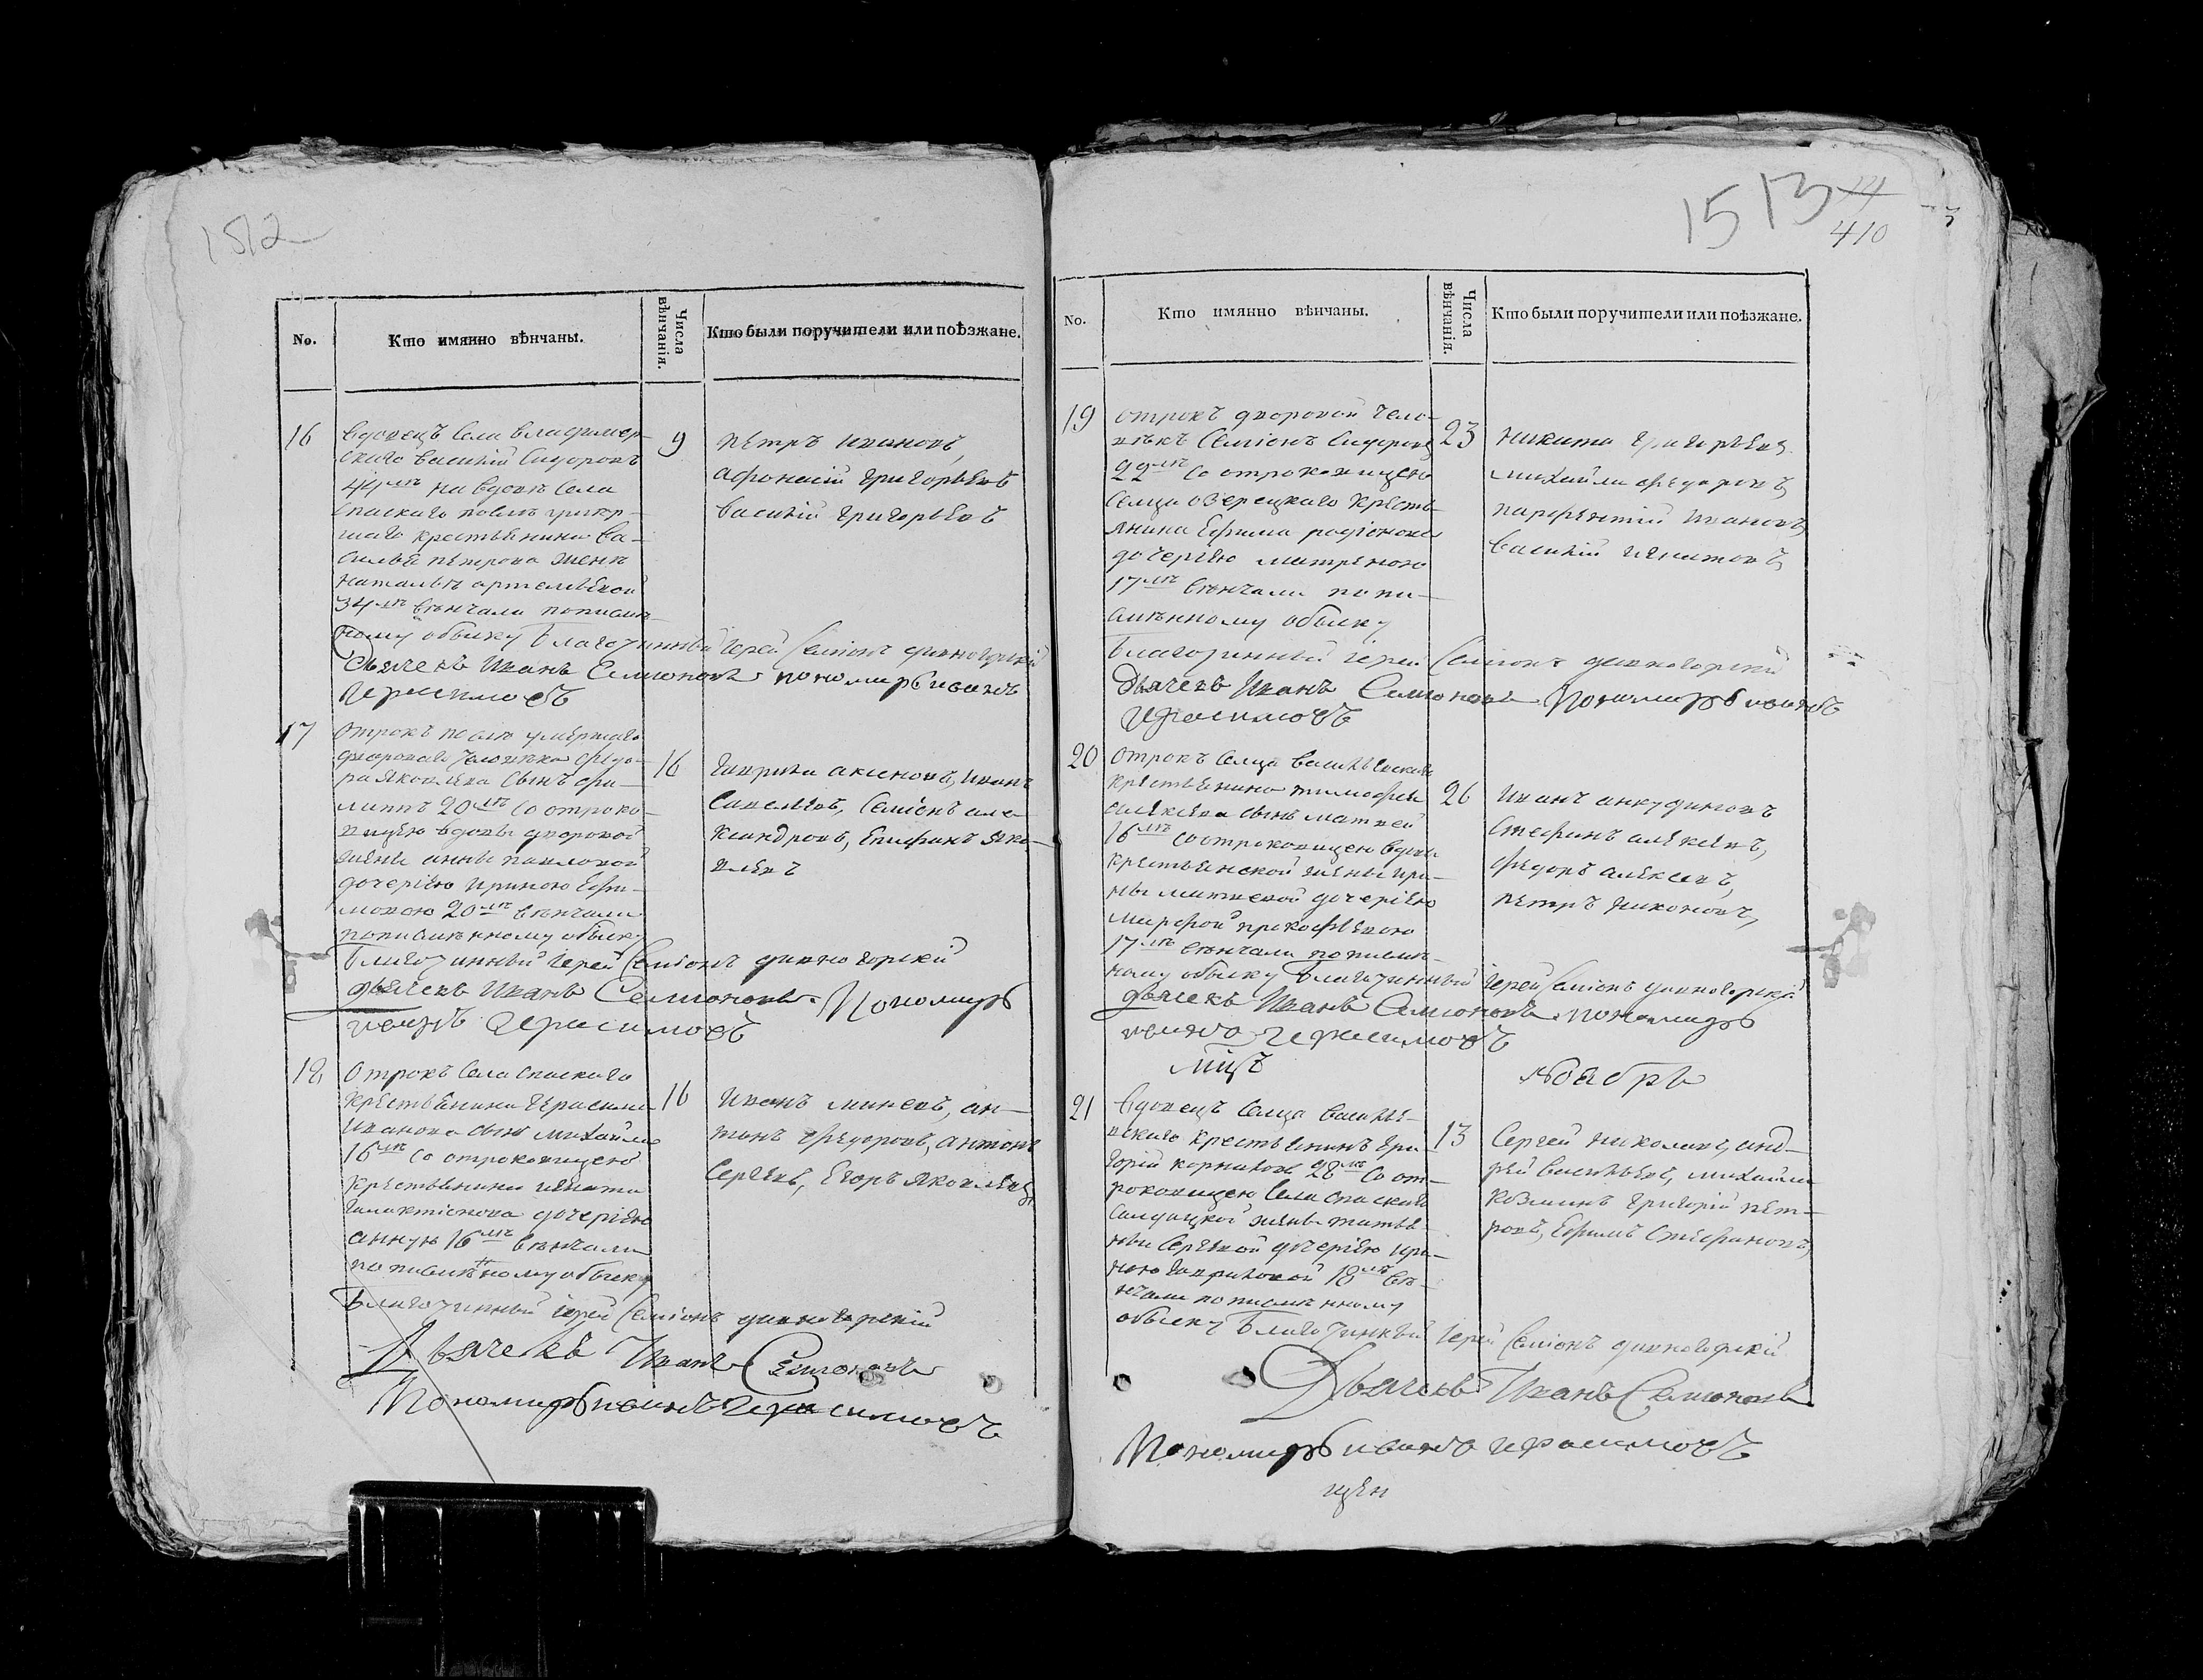 1512
No.
Кто имянно вѣнчаны.
Числа вѣнчанія.
Кто были поручители или поѣзжане.
16
вдовецъ села владимер-
скаго василий Сидоровъ
44 лѣтъ на вдовѣ села
спаскаго
крестьянина ва-
силья петрова женѣ
натальѣ артемьевой
34 лѣтъ венчали пописмѣ-
ному обыску благочинный іерей Семіонъ дивногорский
дьячекъ Иванъ Семионовъ пономарь иванъ
герасимовъ
9
петръ ивановъ,
афонасій григорьевъ
василій григорьевъ
17
отрокъ
двороваго человѣка федо-
ра яковлева сынъ фи-
липпъ 20 лѣтъ со отроко-
вицею вдовы дворовой
жены анны павловой
дочерією ириною ефи-
мовою 20 лѣтъ венчали
пописмѣнному обыску
благочинный іерей Семіонъ дивногорский
дьячекъ Иванъ Семионовъ. Пономарь
иванъ герасимовъ
16
гаврила аксеновъ, иванъ
савельевъ, Семіонъ але-
ксандровъ, Епифанъ яко-
влевъ
18
Отрокъ села спаскаго
крестьянина герасима
иванова сынъ михайла
16 лѣтъ со отроковицею
крестьянина игната
галактіонова дочерією
анною 16 лѣтъ венчали
пописмѣнному обыску
благочинный іерей Семіонъ дивногорский
Дьячекъ Иванъ Семионовъ
Пономарь иванъ герасимовъ
16
Иванъ минеевъ, ан-
тонъ федоровъ, антонъ
Сергеевъ, Егоръ яковлевъ
1513
14
410
No.
Кто имянно вѣнчаны.
Числа вѣнчанія.
Кто были поручители или поѣзжане.
19
отрокъ дворовой чело-
вѣкъ Семіонъ Сидоровъ
22 лѣтъ со отроковицею
селца озерецкаго кресть-
янина Ефима родіонова
дочерією матреною
17 лѣтъ венчали попи-
смѣнному обыску
благочинный іерей Семіонъ дивногорский
дьячекъ Иванъ Семионовъ. Пономарь иванъ
герасимовъ
23
никита григорьевъ
михайла федоровъ,
парфентій ивановъ,
василій никитовъ,
20
отрокъ селца васильевскаго
крестьянина тимофея
алексеева сынъ матвей
16 лѣтъ со отроковицею вдовы
крестьянской жены ири-
ны матвевой дочерією
марфой прокофьевою
17 лѣтъ венчали пописмѣ-
ному обыску благочинный іерей Семіонъ дивногорский
дьячекъ Иванъ Семионовъ. пономарь
иванъ герасимовъ
26
Иванъ анкудиновъ
Стефанъ алексеевъ,
федоръ алексеевъ,
петръ никоновъ,
мцъ ноябрь
21
вдовецъ селца василье-
вскаго крестьянинъ гри-
горій корниловъ 28 лѣтъ со от-
роковицею села спаскаго
салдацкой жены татья-
ны Сергевой дочерією ири-
ною гавриловой 18 лѣтъ вѣ-
нчали пописмѣнному
обыску благочинный іерей Семіонъ дивногорский
Дьячекъ Иванъ Семионовъ
Пономарь иванъ герасимовъ
13
Сергей николаевъ, анд-
рей васильевъ, михайла
козминъ григорій пет-
ровъ, Ефимъ Стефановъ,
щен